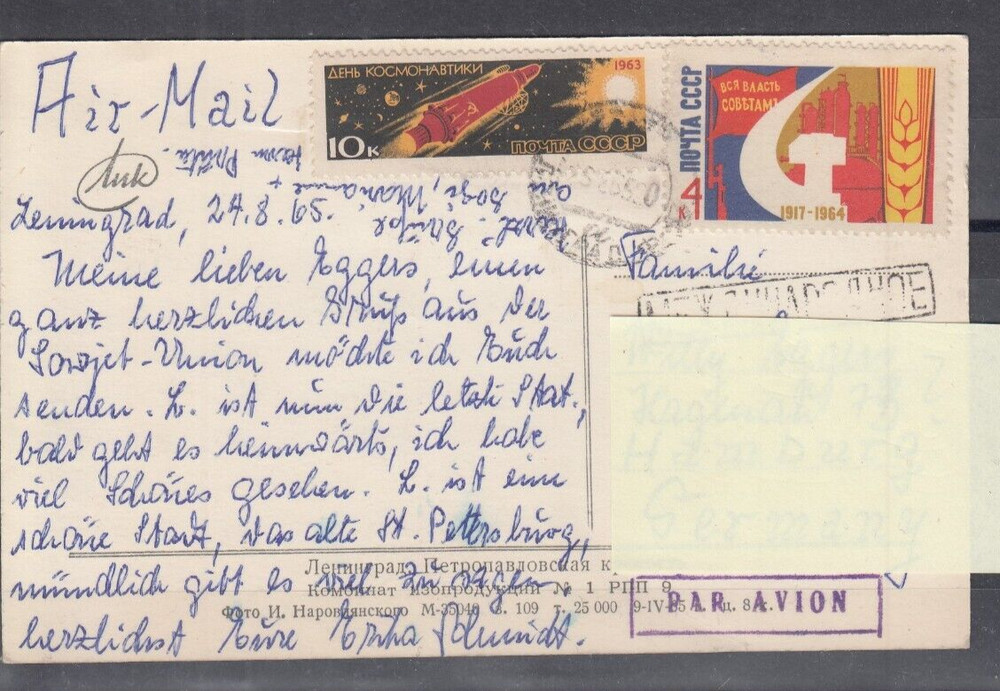 Air-Mail
ДЕНЬ КОСМОНАВТИКИ
1963
10к
ПОЧТА СССР
ПОЧТА СССР
ВСЯ ВЛАСТЬ
СОВЕТАМ!
4 к
1917-1964
Leningrad, 24.8.65.
Meine lieben Eggers, einen
ganz herzlichen Gruß aus der
Sowjet-Union möchte ich Euch
senden. L. ist nun die letzte Stat.,
bald geht es heimwärts, ich habe
viel Schönes gesehen. L. ist eine
schöne Stadt, das alte St. Petersburg,
mündlich gibt es viel zu sagen
herzlichst Eure Erika Schmidt.
Familie
МЕЖДУНАРОДНОЕ
Germany
Ленинград. Петропавловская к
Комбинат изопродукции № 1 РПП 9
Фото И. Наровлянского М-35046 З. 109 т. 25 000 9-IV-65 Ц. 8 к.
PAR AVION